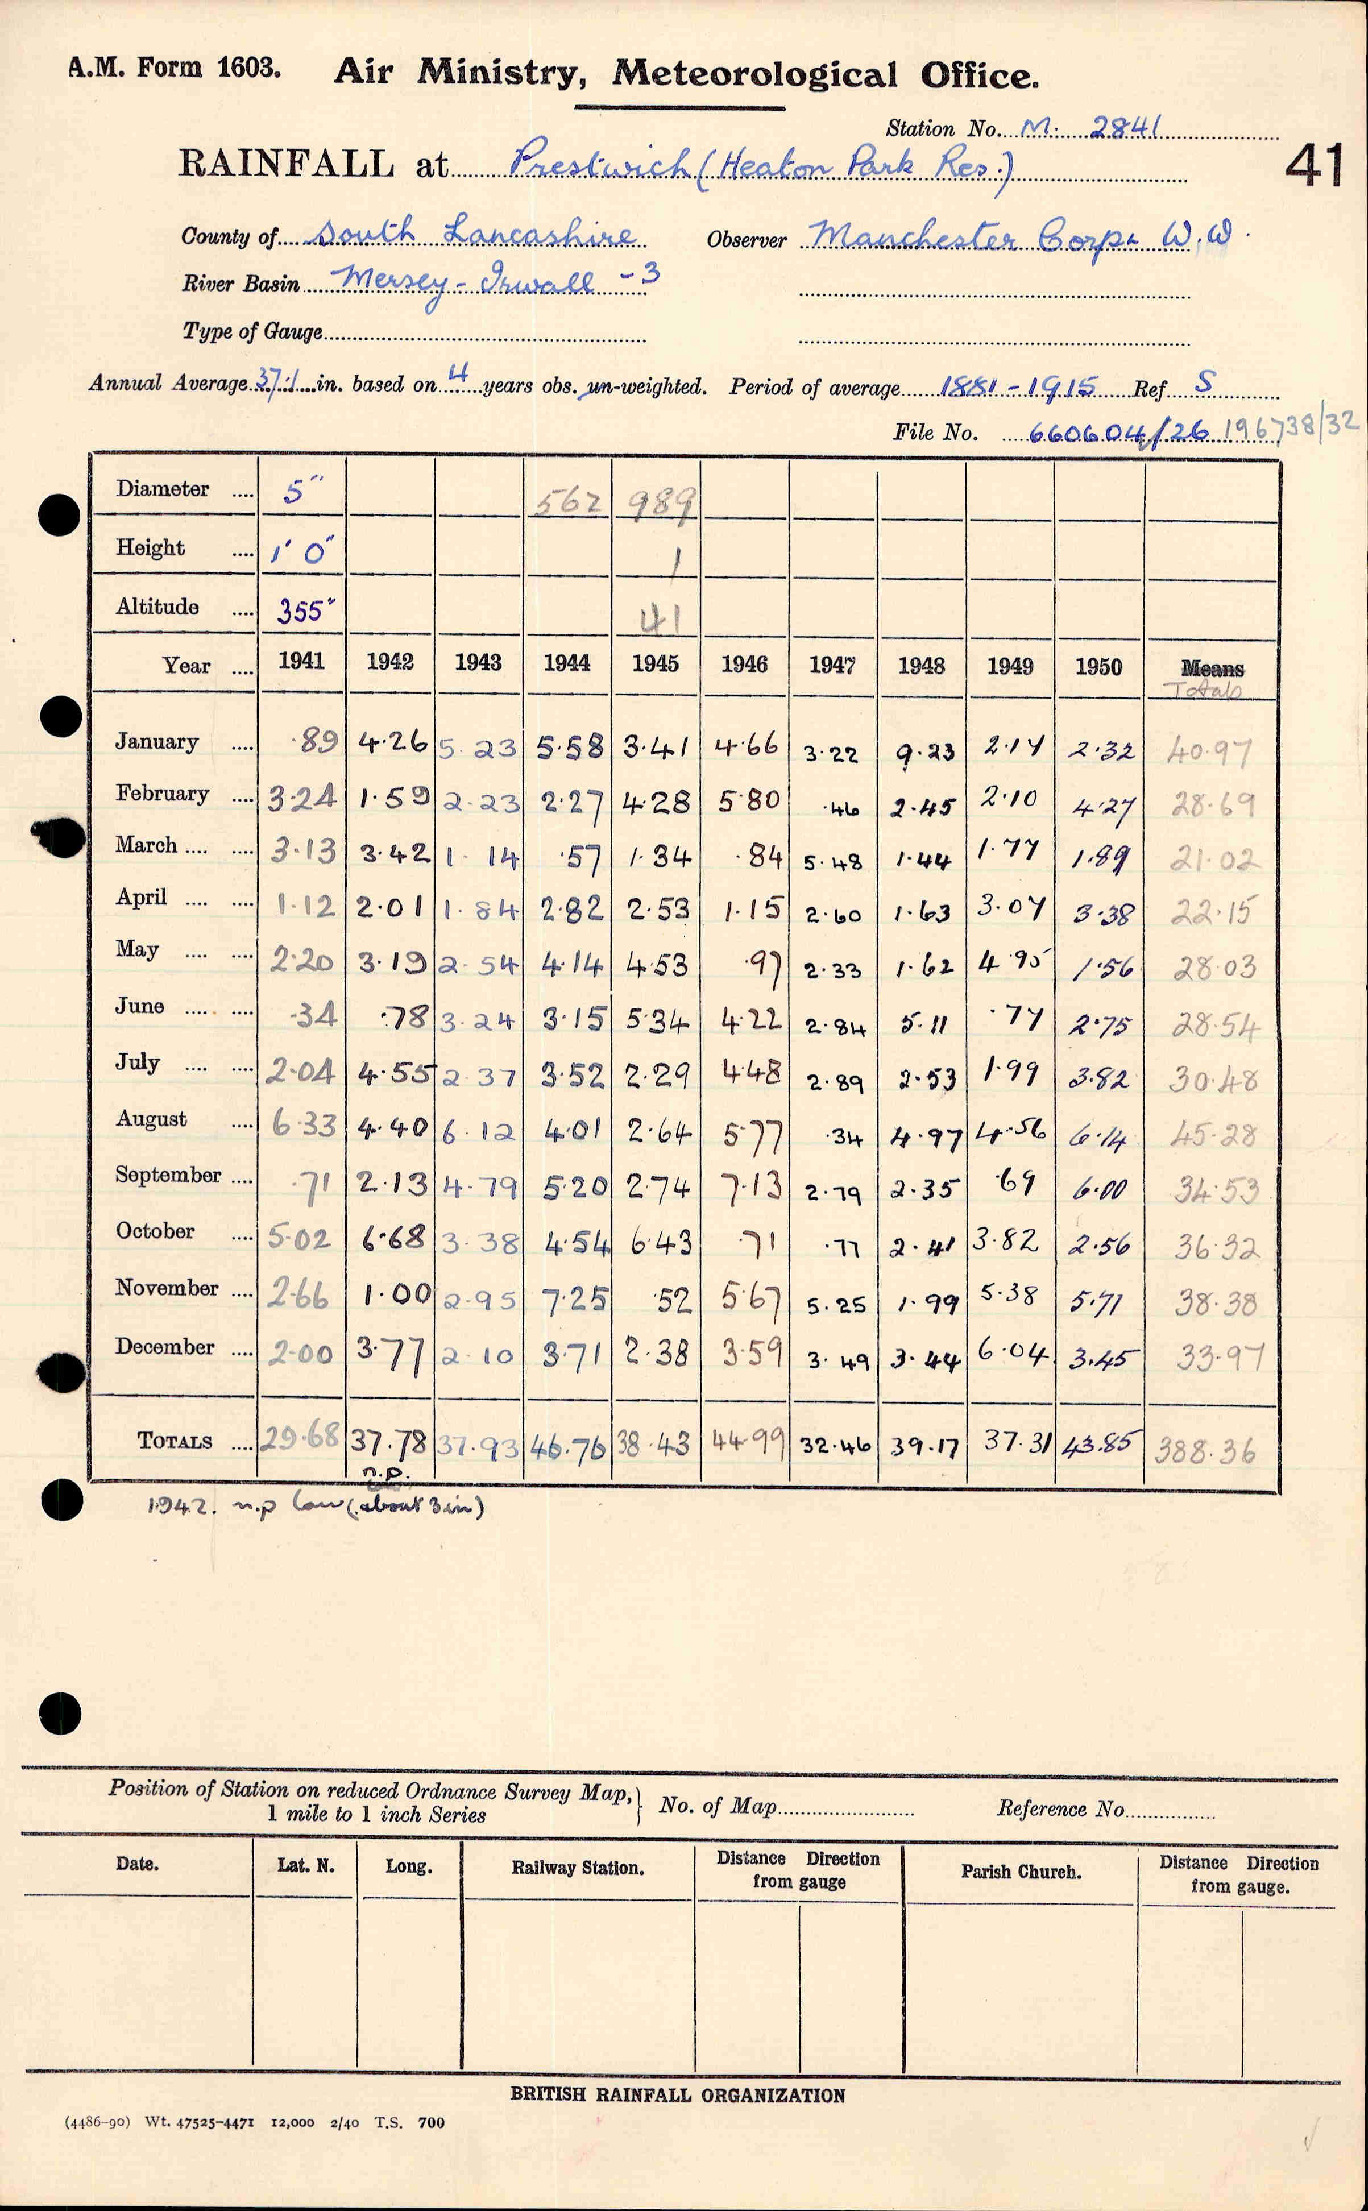 A.M. Form 1603. Air Ministry, Meteorological Office.
Station No. M. 2841
41
RAINFALL at Prestwich (Heaton Park Res.)
County of South Lancashire Observer Manchester Corpn W.W.
River Basin Mersey - Irwall - 3
Type of Gauge
Annual Average 37.1 in. based on 4 years obs. un-weighted. Period of average 1881-1915 Ref S
File No. 660604/26 196738/32
Diameter .... 5" 562 989
Height .... 1' 0" 1
Altitude .... 355" 41
Year .... 1941 1942 1943 1944 1945 1946 1947 1948 1949 1950 Means
Totals
January .... .89 4.26 5.23 5.58 3.41 4.66 3.22 9.23 2.17 2.32 40.97
February .... 3.24 1.59 2.23 2.27 4.28 5.80 .46 2.45 2.10 4.27 28.69
March .... .... 3.13 3.42 1.14 .57 1.34 .84 5.48 1.44 1.77 1.89 21.02
April .... .... 1.12 2.01 1.84 2.82 2.53 1.15 2.60 1.63 3.07 3.38 22.15
May .... .... 2.20 3.19 2.54 4.14 4.53 .97 2.33 1.62 4.95 1.56 28.03
June .... .... .34 .78 3.24 3.15 5.34 4.22 2.84 5.11 .77 2.75 28.54
July .... .... 2.04 4.55 2.37 3.52 2.29 4.48 2.89 2.53 1.99 3.82 30.48
August .... 6.33 4.40 6.12 4.01 2.64 5.77 .34 4.97 4.56 6.14 45.28
September .... .71 2.13 4.79 5.20 2.74 7.13 2.79 2.35 .69 6.00 34.53
October .... 5.02 6.68 3.38 4.54 6.43 .71 .77 2.41 3.82 2.56 36.32
November .... 2.66 1.00 2.95 7.25 .52 5.67 5.25 1.99 5.38 5.71 38.38
December .... 2.00 3.77 2.10 3.71 2.38 3.59 3.49 3.44 6.04 3.45 33.97
TOTALS .... 29.68 37.78 37.93 46.76 38.43 44.99 32.46 39.17 37.31 43.85 388.36
n.p.
1942. n.p low (about 3 in)
Position of Station on reduced Ordnance Survey Map, } No. of Map Reference No.
1 mile to 1 inch Series
Date. Lat. N. Long. Railway Station. Distance Direction from gauge Parish Church. Distance Direction from gauge.
BRITISH RAINFALL ORGANIZATION
(4486-90) Wt. 47525-4471 12,000 2/40 T.S. 700